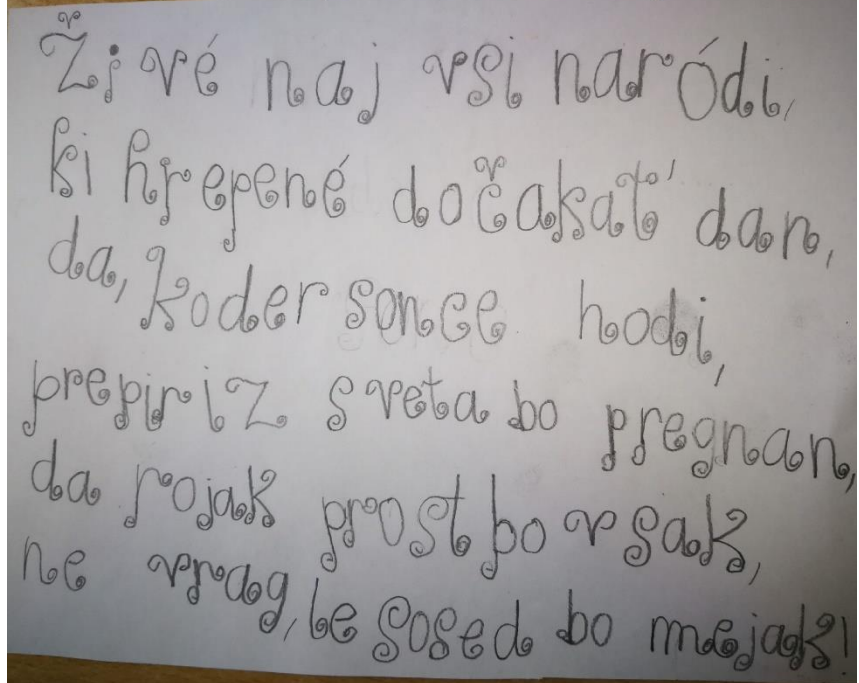 Živé naj vsi naródi,
ki hrepené dočakat' dan,
da, koder sonce hodi,
prepir iz sveta bo pregnan,
da rojak prost bo vsak,
ne vrag, le sosed bo mejak!